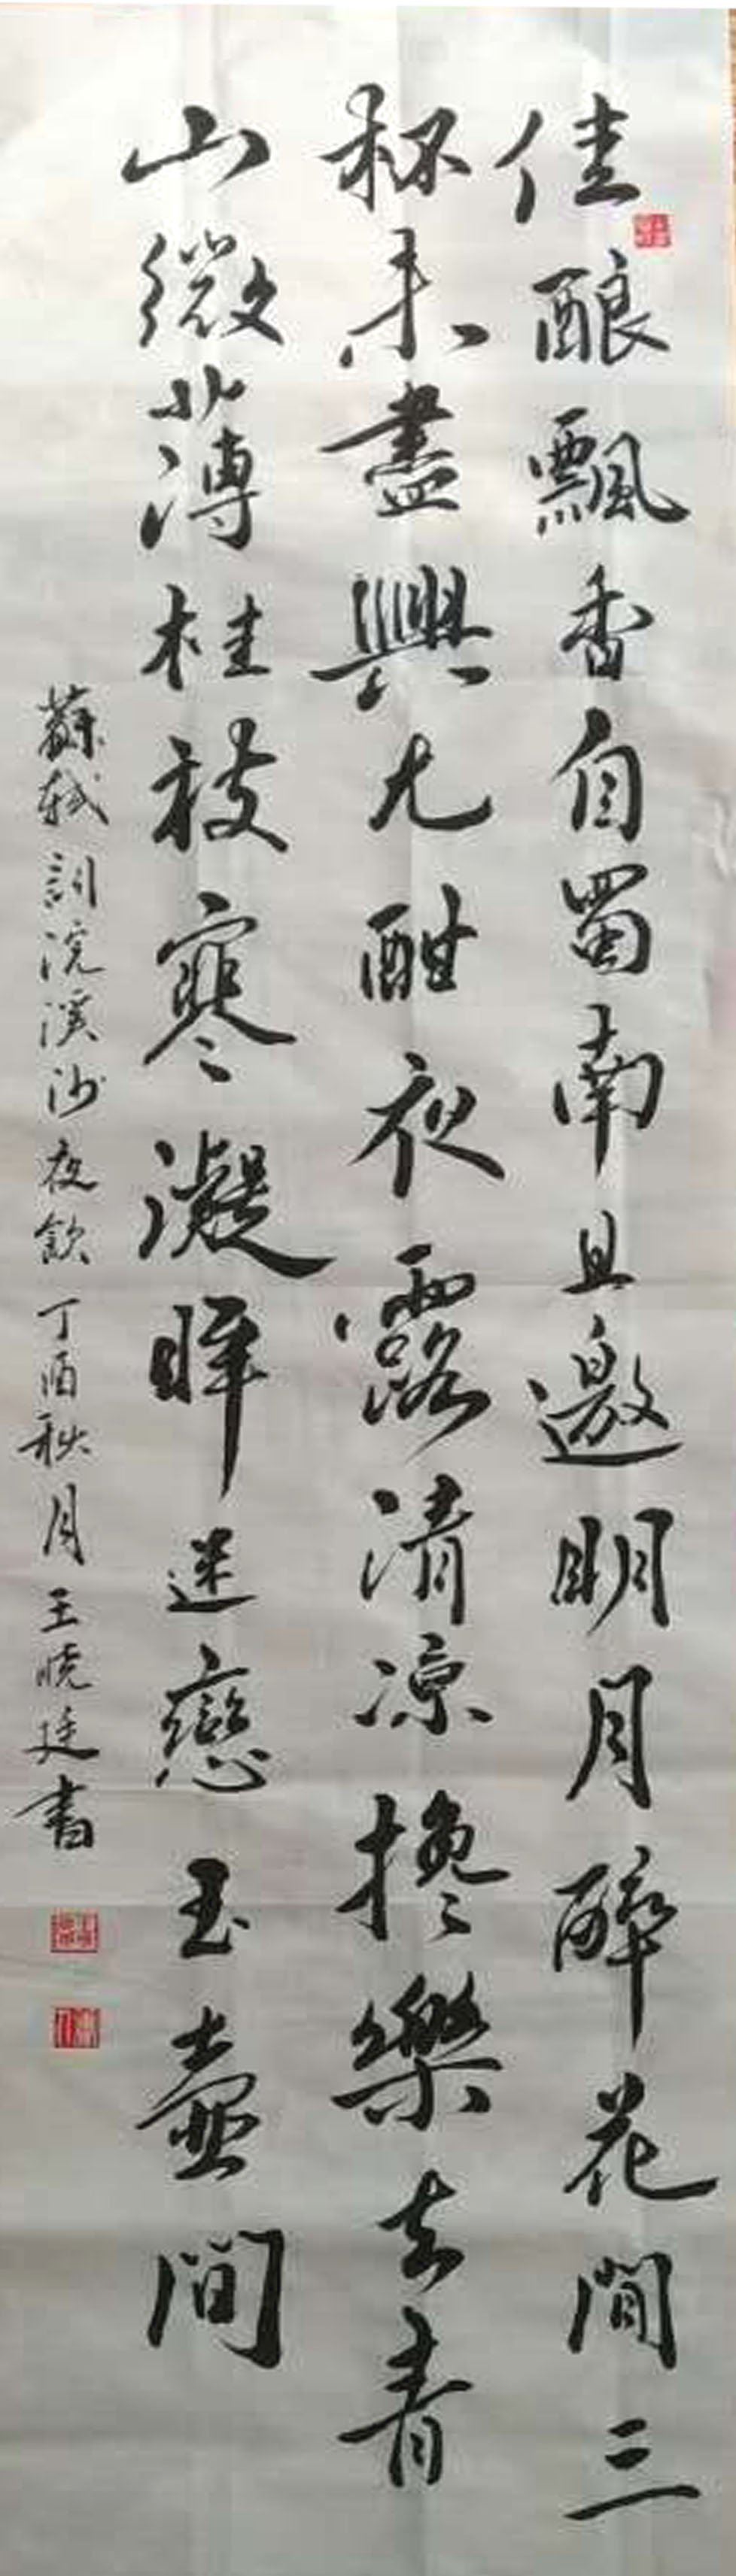 佳酿飄香自蜀南且邀明月醉花間三
杯未盡興尤酣夜露清凉攙樂去青
山微薄桂枝寒凝眸迷戀玉壺間
蘇軾詞浣溪沙夜飲丁酉秋月王曉廷書